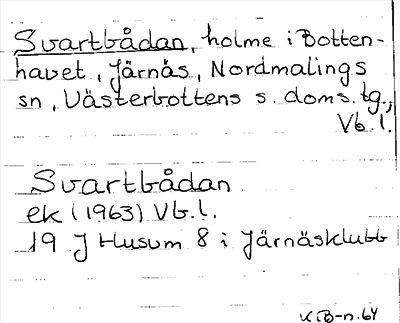 Svartbådan, holme i Botten-
havet, Järnäs, Nordmalings
sn, Västerbottens s. doms. tg.,
Vb. l.
Svartbådan
ek (1963) Vb. l.
19 J Husum 8 i Järnäsklubb
KiB-n. 64